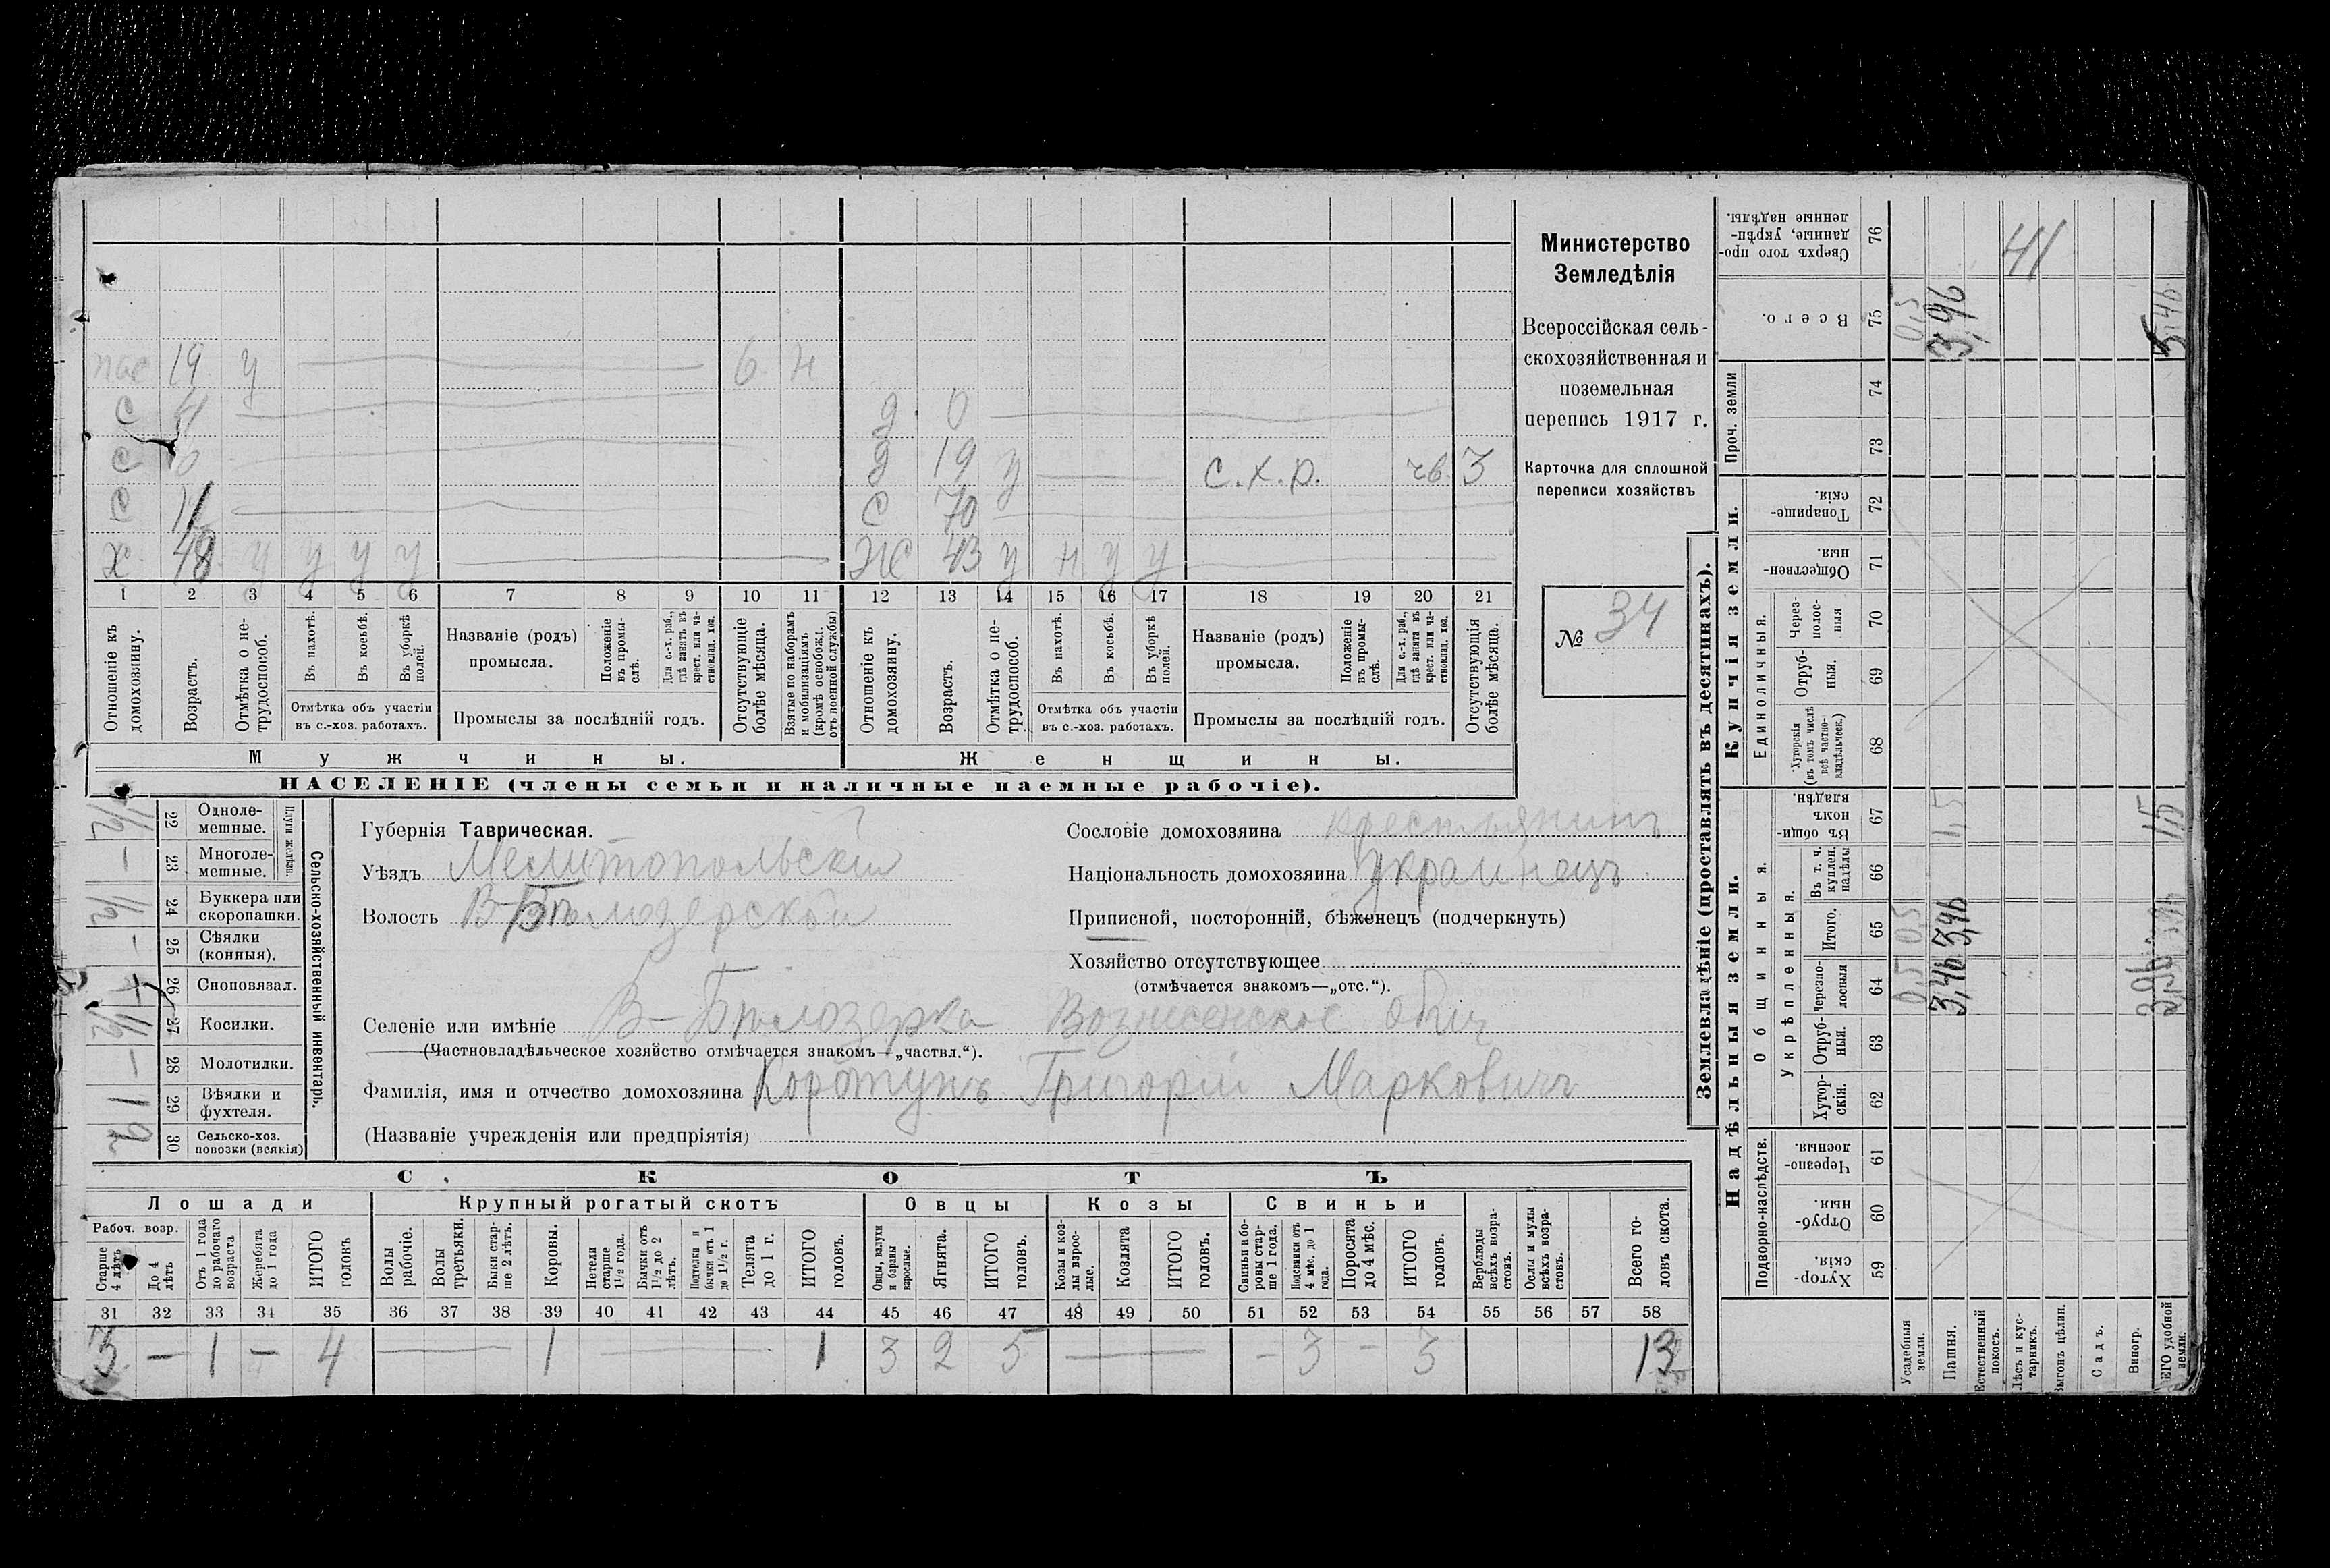 пас 19 у — 6 н
с 4 —
д. 0 —
с —
д 19 у — с.х.р. чв. 3
с 11 —
с 70 —
х 48 у у у у — —
Ж 43 у н у у — —
1 2 3 4 5 6 7 8 9 10 11 12 13 14 15 16 17 18 19 20 21
Отношеніе къ домохозяину.
Возрастъ.
Отмѣтка о не-
трудоспособ.
Въ пахотѣ.
Въ косьбѣ.
Въ уборкѣ полей.
Отмѣтка объ участіи
въ с.-хоз. работахъ.
Названіе (родъ)
промысла.
Положеніе
въ промы-
слѣ.
Для с.-х. раб.,
гдѣ занятъ въ
крест. или ча-
стновлад. хоз.
Промыслы за послѣдній годъ.
Отсутствующіе
болѣе мѣсяца.
Взятые по наборамъ
и мобилизаціямъ
(кромѣ освобожд.
отъ военной службы)
Отношеніе къ
домохозяину.
Возрастъ.
Отмѣтка о не-
трудоспособ.
Въ пахотѣ.
Въ косьбѣ.
Въ уборкѣ
полей.
Отмѣтка объ участіи
въ с.-хоз. работахъ.
Названіе (родъ)
промысла.
Положеніе
въ промы-
слѣ.
Для с.-х. раб.,
гдѣ занята въ
крест. или ча-
стновлад. хоз.
Промыслы за послѣдній годъ.
Отсутствующія
болѣе мѣсяца.
Мужчины.
Женщины.
НАСЕЛЕНІЕ (члены семьи и наличные наемные рабочіе).
Министерство
Земледѣлія
Всероссійская сель-
скохозяйственная и
поземельная
перепись 1917 г.
Карточка для сплошной
переписи хозяйствъ
№ 34
Сельско-хозяйственный инвентарь.
Плуги желѣзн.
22 Одноле-
мешные. 1/2
23 Многоле-
мешные. —
24 Буккера или
скоропашки. 1/2
25 Сѣялки
(конныя). —
26 Сноповязал.
27 Косилки. 1/2
28 Молотилки. —
29 Вѣялки и
фухтеля. 1
30 Сельско-хоз.
повозки (всякія) 2
Губернія Таврическая.
Уѣздъ Мелитопольскій
Волость В-Бѣлозерской
Сословіе домохозяина крестьянинъ
Національность домохозяина Украинецъ
Приписной, посторонній, бѣженецъ (подчеркнуть)
Хозяйство отсутствующее
(отмѣчается знакомъ—„отс.“).
Селеніе или имѣніе В-Бѣлозерка Вознесенское общ
(Частновладѣльческое хозяйство отмѣчается знакомъ—„частвл.“).
Фамилія, имя и отчество домохозяина Коротунъ Григорій Марковичъ
(Названіе учрежденія или предпріятія)
СКОТЪ
Лошади
Крупный рогатый скотъ
Овцы
Козы
Свиньи
Рабоч. возр.
Старше
4 лѣтъ
До 4
лѣтъ
Отъ 1 года
до рабочаго
возраста
Жеребята
до 1 года
ИТОГО
головъ
Волы
рабочіе.
Волы
третьяки.
Быки стар-
ше 2 лѣтъ.
Коровы.
Нетели
старше
1 1/2 года.
Бычки отъ
1 1/2 до 2
лѣтъ.
Подтелки и
бычки отъ 1
до 1 1/2 г.
Телята
до 1 г.
ИТОГО
головъ.
Овцы, валухи
и бараны
взрослые.
Ягнята.
ИТОГО
головъ.
Козы и коз-
лы взрос-
лые.
Козлята
ИТОГО
головъ.
Свиньи и бо-
ровы стар-
ше 1 года.
Подсвинки отъ
4 мѣс. до 1
года.
Поросята
до 4 мѣс.
ИТОГО
головъ.
Верблюды
всѣхъ возра-
стовъ.
Ослы и мулы
всѣхъ возра-
стовъ.
Всего го-
ловъ скота.
31 32 33 34 35 36 37 38 39 40 41 42 43 44 45 46 47 48 49 50 51 52 53 54 55 56 57 58
3 — 1 — 4 — 1 — 1 3 2 5 — — 3 — 3 13
Землевладѣніе (проставлять въ десятинахъ).
Надѣльныя земли.
Купчія земли.
Проч. земли
Подворно-наслѣдств.
Общинныя.
Укрѣпленныя.
Единоличныя.
Хутор-
скія. 59
Отруб-
ныя. 60
Черезпо-
лосныя 61
Хутор-
скія. 62
Отруб-
ныя. 63
Черезпо-
лосныя 64
Итого. 65
Въ т. ч.
куплен.
надѣлы 66
Въ общи-
номъ
владѣн. 67
Хуторскія
(въ томъ числѣ
всѣ частно-
владѣльческ.) 68
Отруб-
ныя. 69
Через-
полос-
ныя 70
Обществен-
ныя. 71
Товарище-
скія. 72
73
74
Всего. 75
Сверхъ того про-
данные, укрѣп-
ленные надѣлы. 76
Усадебныя
земли. 0,5 0,5 0,5
Пашня. 3,46 3,46 1,5 3,96
Естественный
покосъ.
Лѣсъ и кус-
тарникъ. 41
Выгонъ цѣлин.
Садъ.
Виногр.
ЕГО удобной
земли. 3,96 3,96 1,5 5,46